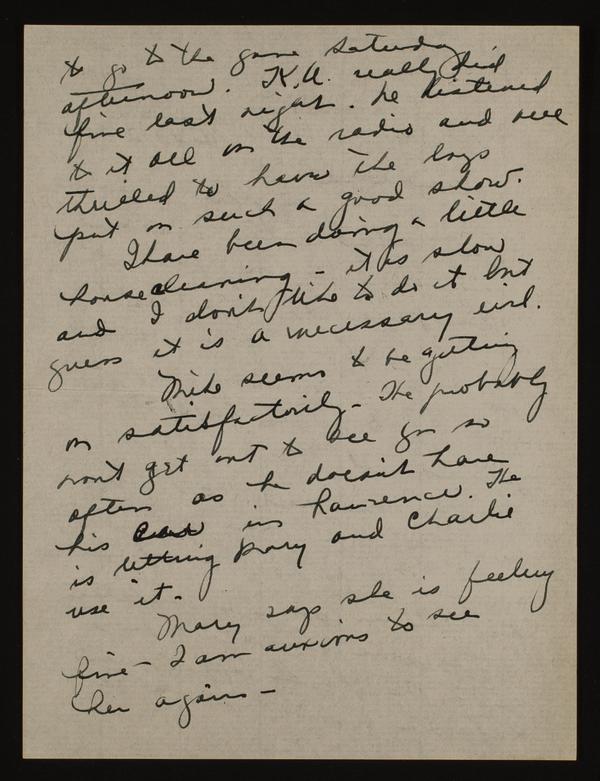 to go to the game Saturday
afternoon. K.U. really did
fine last night. We listened
to it all on the radio and were
thrilled to have the boys
put on such a good show.
I have been doing a little
housecleaning - it is slow
and I don't like to do it but
guess it is a necessary evil.
Mike seems to be getting
on satisfactorily - He probably
won't get out to see you so
often as he doesn't have
his car in Lawrence. He
is letting Mary and Charlie
use it -
Mary says she is feeling
fine - I am anxious to see
her again -